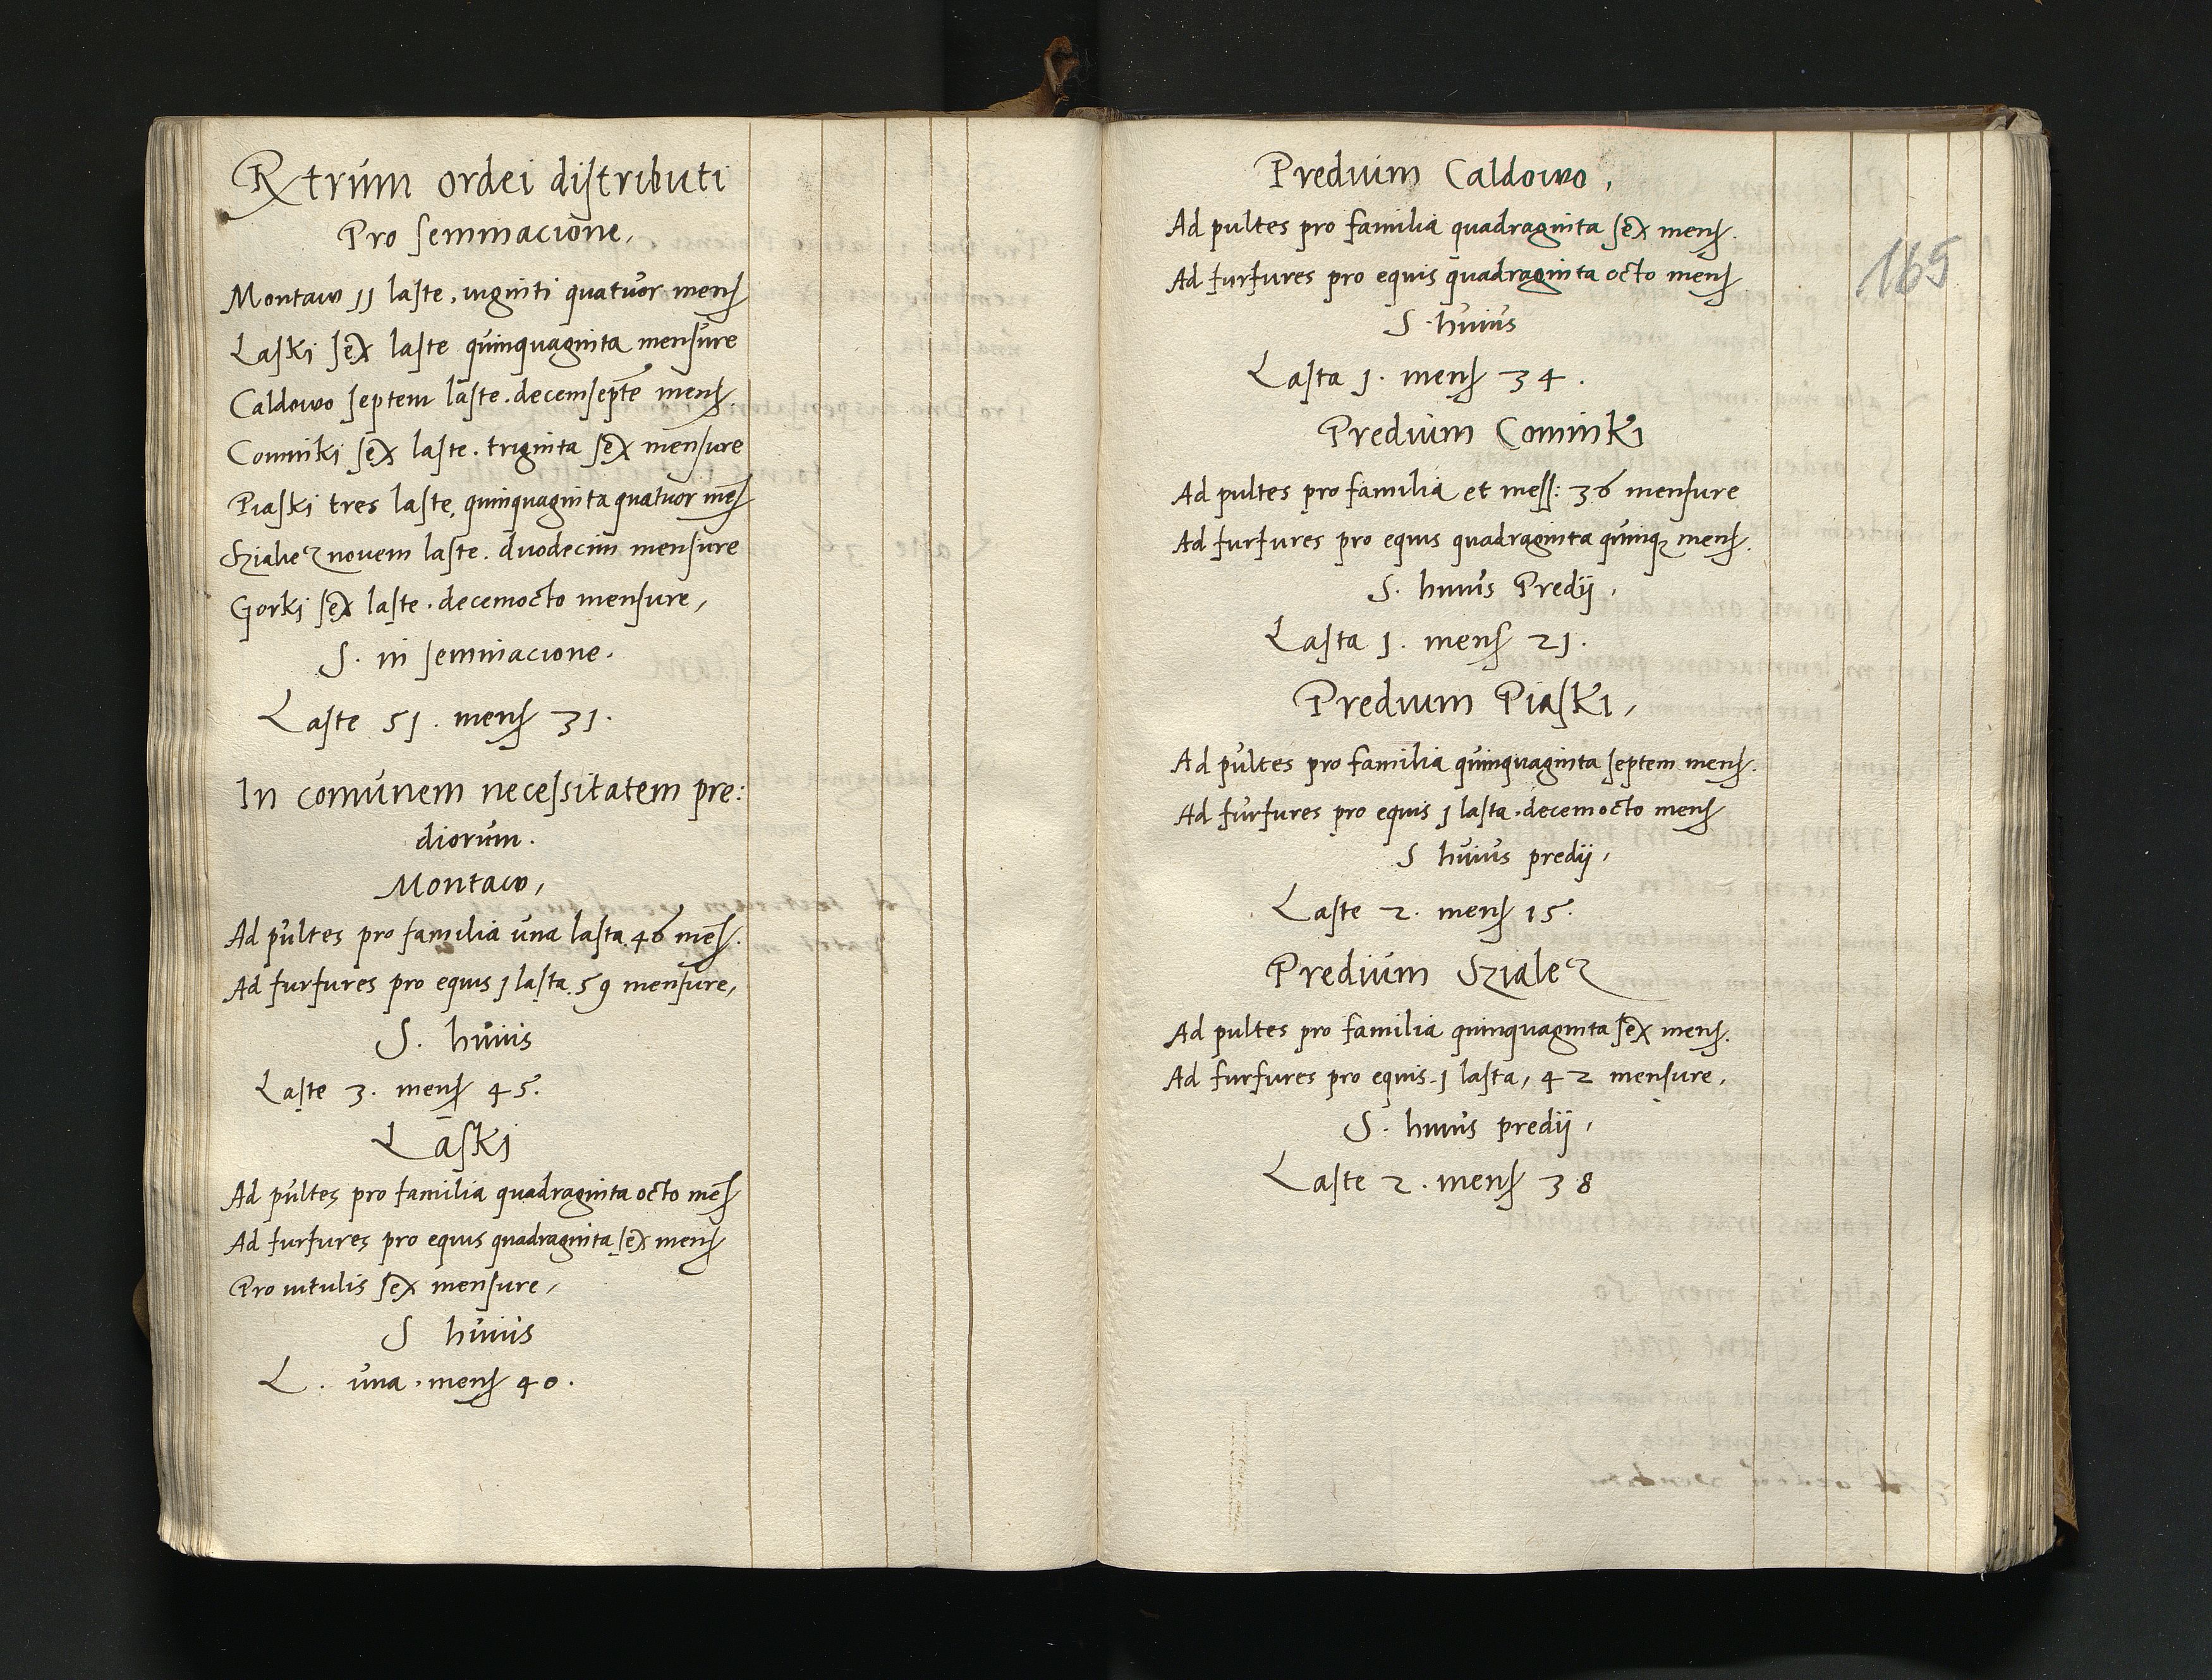 Rtrum ordei distributi
Pro seminacione,
Montaw 11 laste, viginti quatuor mens
Laski sex laste quinquaginta mensure
Caldowo septem laste. decemsepte mens.
Cominki sex laste. triginta sex mensure
Piaski tres laste, quinquaginta quatuor mes
novem laste. duodecim mensure
Gorki sex laste. decemocto mensure,
S. in seminacione.
Laste 51. mens 31.
In comunem necessitatem pre:
diorum.
Montaw,
Ad pultes pro familia una lasta 46 mes.
Ad furfures pro equis 1 lasta. 59 mensure,
S. huius
Laste 3. mens 45.
Laski
Ad pultes pro familia quadraginta octo mes
Ad furfures pro equis quadraginta sex mens
Pro vitulis sex mensure,
S huius
L. una. mens 40.
Predium Caldowo,
Ad pultes pro familia quadraginta sex mens.
Ad furfures pro equis quadraginta octo mens
165
S. huius
Lasta 1. mens 34.
Predium Cominki
Ad pultes pro familia et mess: 36 mensure
Ad furfures pro equis quadraginta quinq mens.
S. huius Predij,
Lasta 1. mens 21.
Predium Piaski,
Ad pultes pro familia quinquaginta septem mens.
Ad furfures pro equis 1 lasta. decemocto mens
S huius predij,
Laste 2. mens 15.
Predium Szialer
Ad pultes pro familia quinquaginta sex mens.
Ad furfures pro equis. 1 lasta, 42 mensure,
S. huius predij,
Laste 2. mens 38